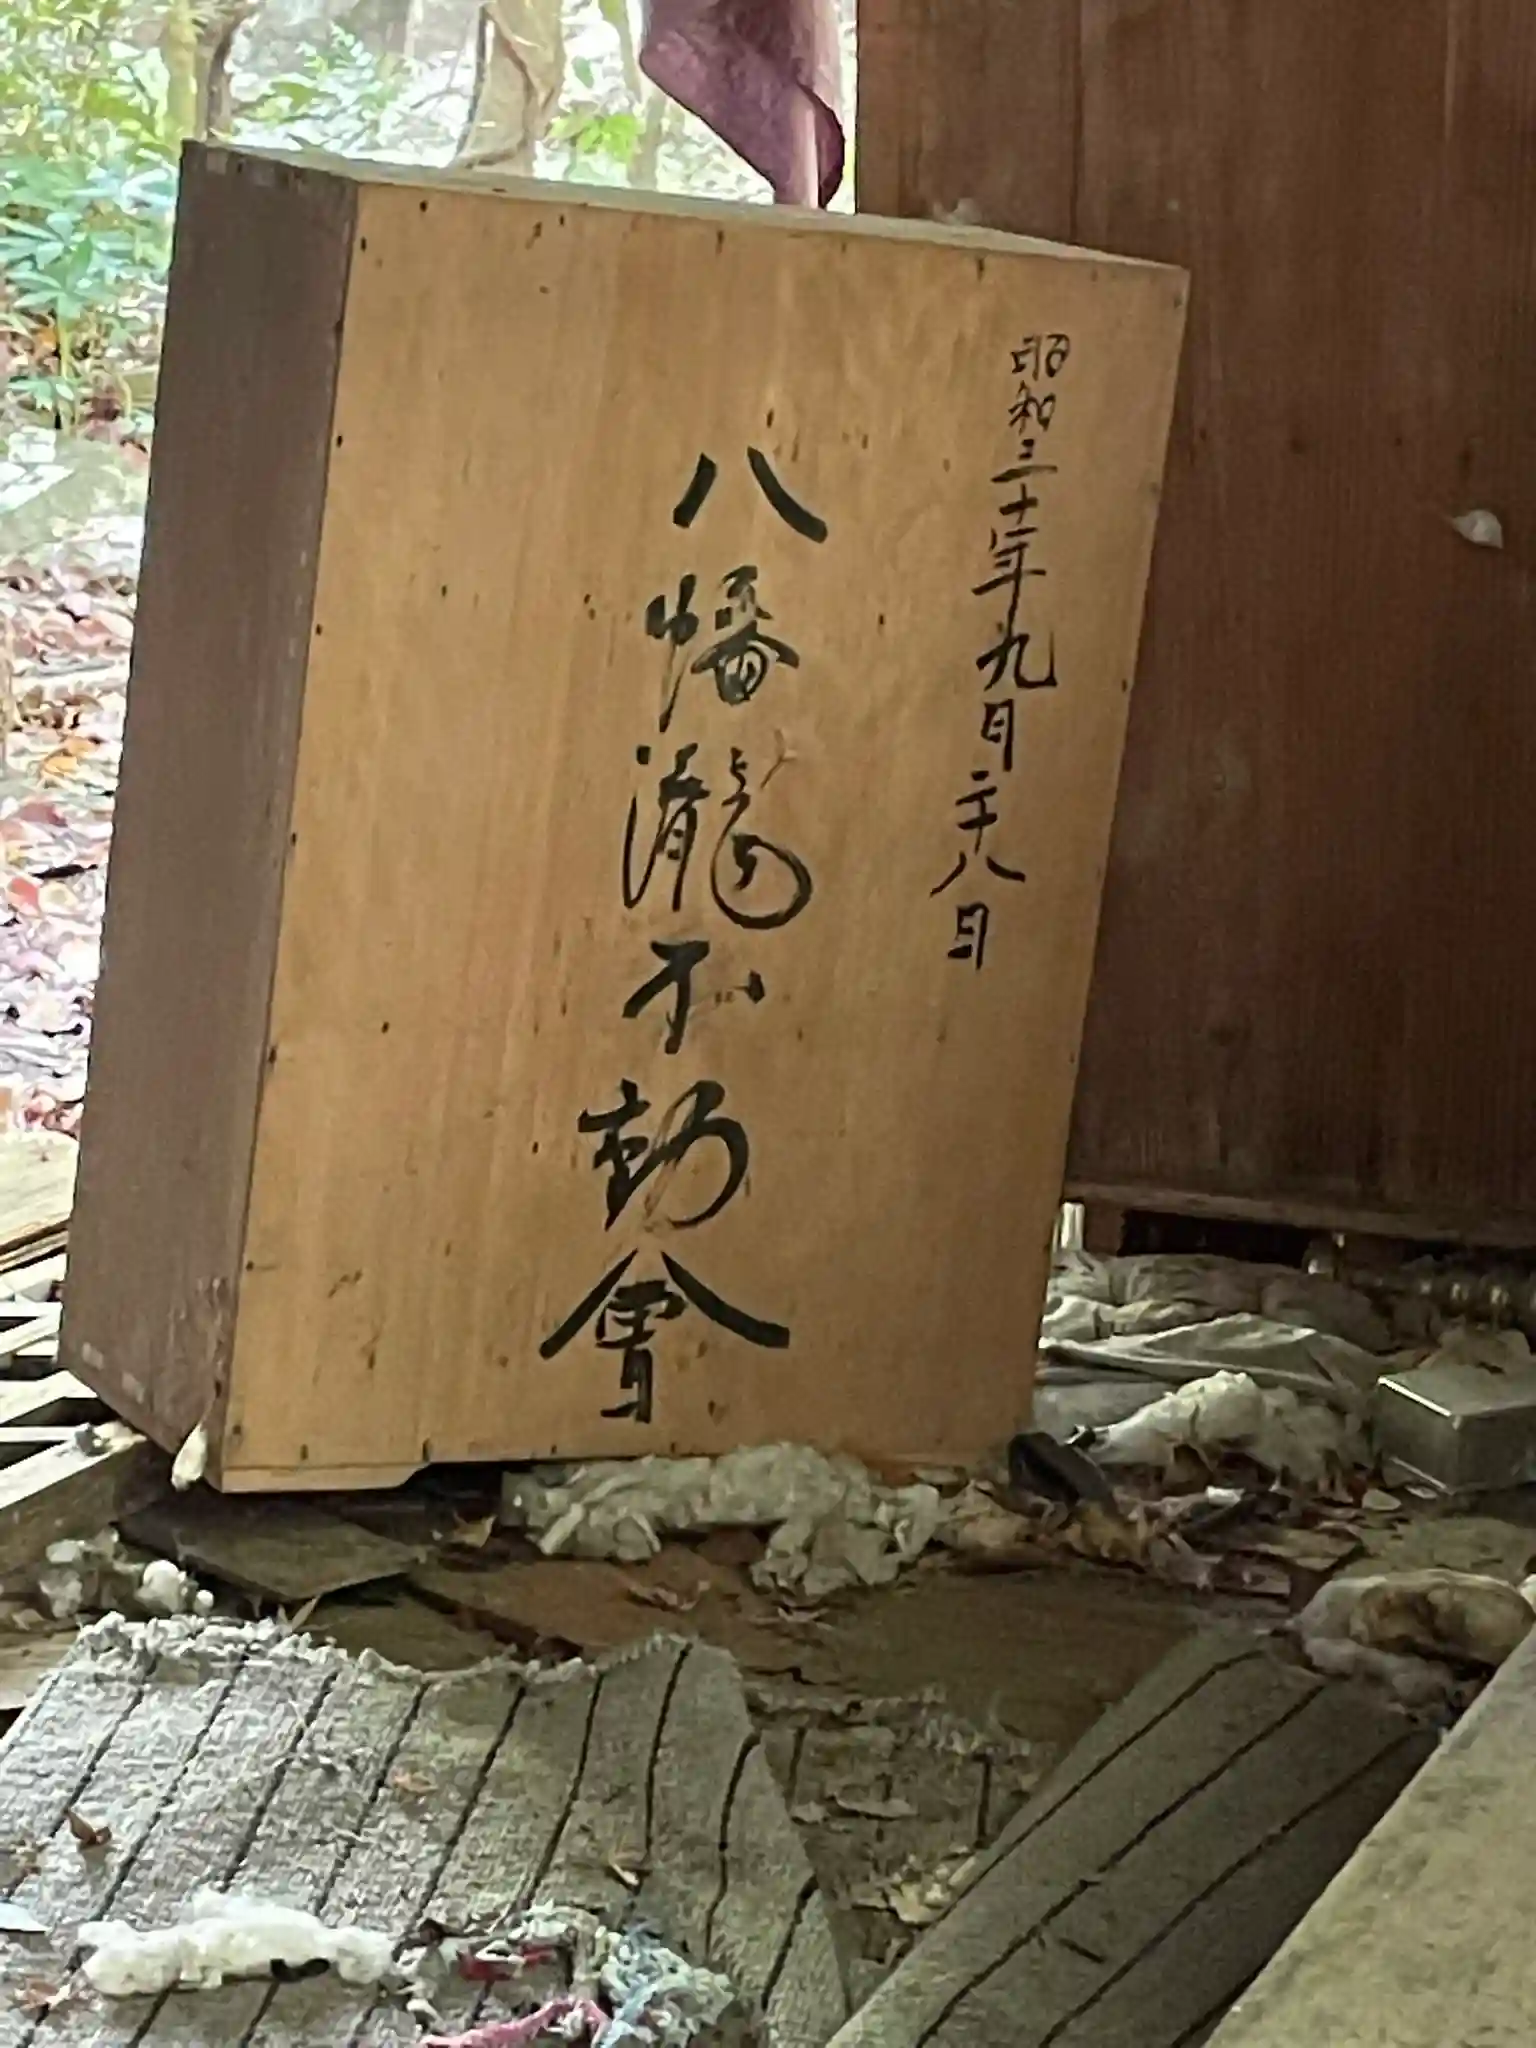 昭和三十年九月二十八日
八幡瀧不動會